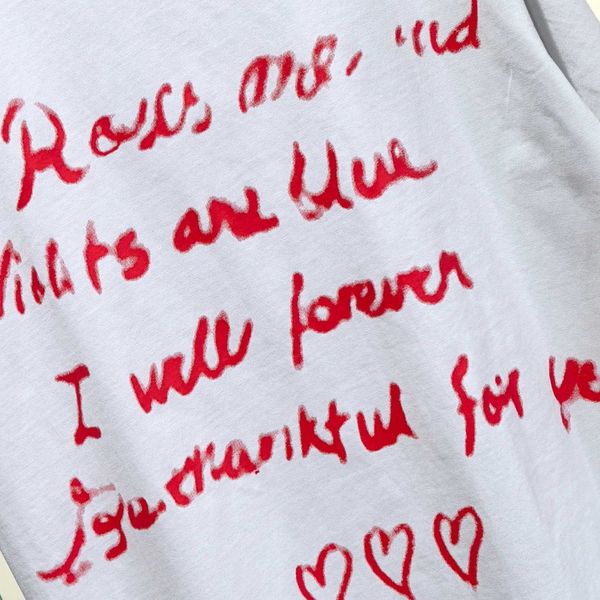 Roses are red
Violets are blue
I will forever
be thankful for